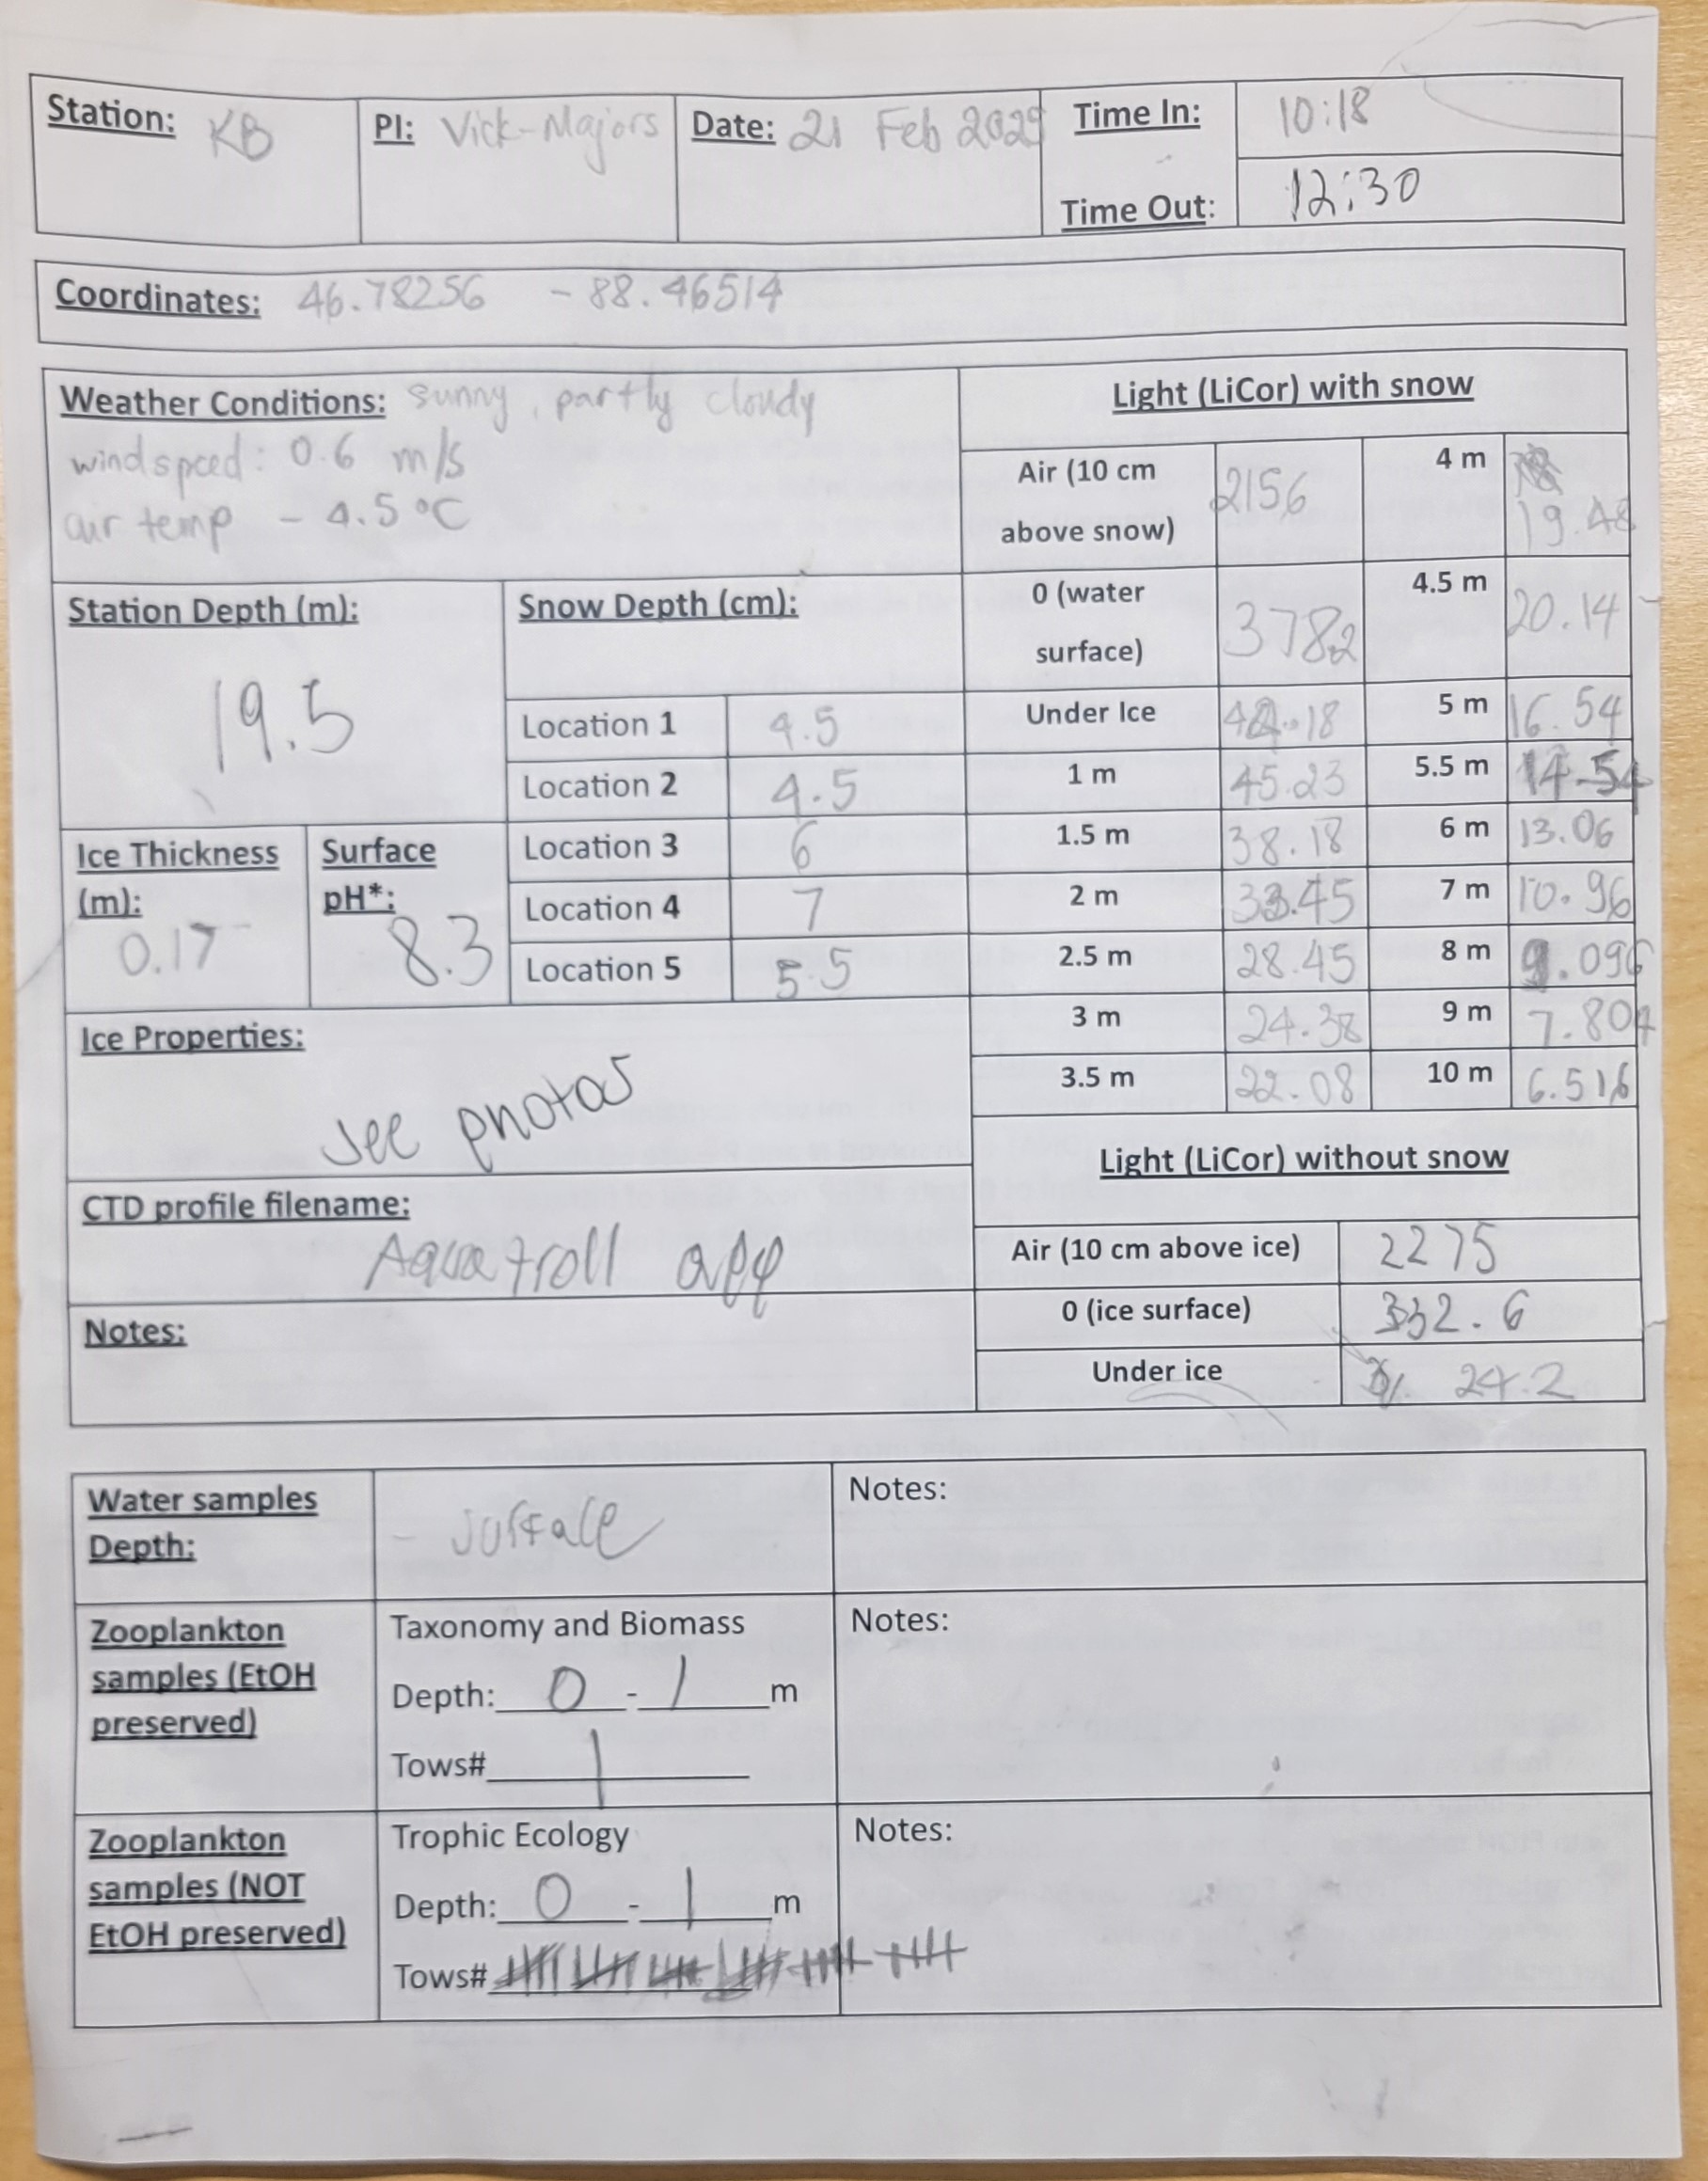 Station: KB PI: Vick-Majors Date: 21 Feb 2025 Time In: 10:18
Time Out: 12:30
Coordinates: 46.78256 -88.46514
Weather Conditions: sunny, partly cloudy
windspeed: 0.6 m/s
air temp -4.5 °C
Station Depth (m):
19.5
Snow Depth (cm):
Location 1 4.5
Location 2 4.5
Location 3 6
Location 4 7
Location 5 5.5
Ice Thickness (m):
0.17
Surface pH*:
8.3
Ice Properties:
see photos
CTD profile filename:
Aquatroll app
Notes:
Light (LiCor) with snow
Air (10 cm above snow) 2156 4 m 19.48
0 (water surface) 4.5 m 20.14
Under Ice 5 m 16.54
1 m 45.23 5.5 m 14.54
1.5 m 38.18 6 m 13.06
2 m 33.45 7 m 10.96
2.5 m 28.45 8 m 9.096
3 m 24.38 9 m 7.804
3.5 m 22.08 10 m 6.516
Light (LiCor) without snow
Air (10 cm above ice) 2275
0 (ice surface) 332.6
Under ice 24.2
Water samples Depth: - surface Notes:
Zooplankton samples (EtOH preserved)
Taxonomy and Biomass
Depth: 0 - 1 m
Tows# 1
Notes:
Zooplankton samples (NOT EtOH preserved)
Trophic Ecology
Depth: 0 - 1 m
Tows#
Notes: